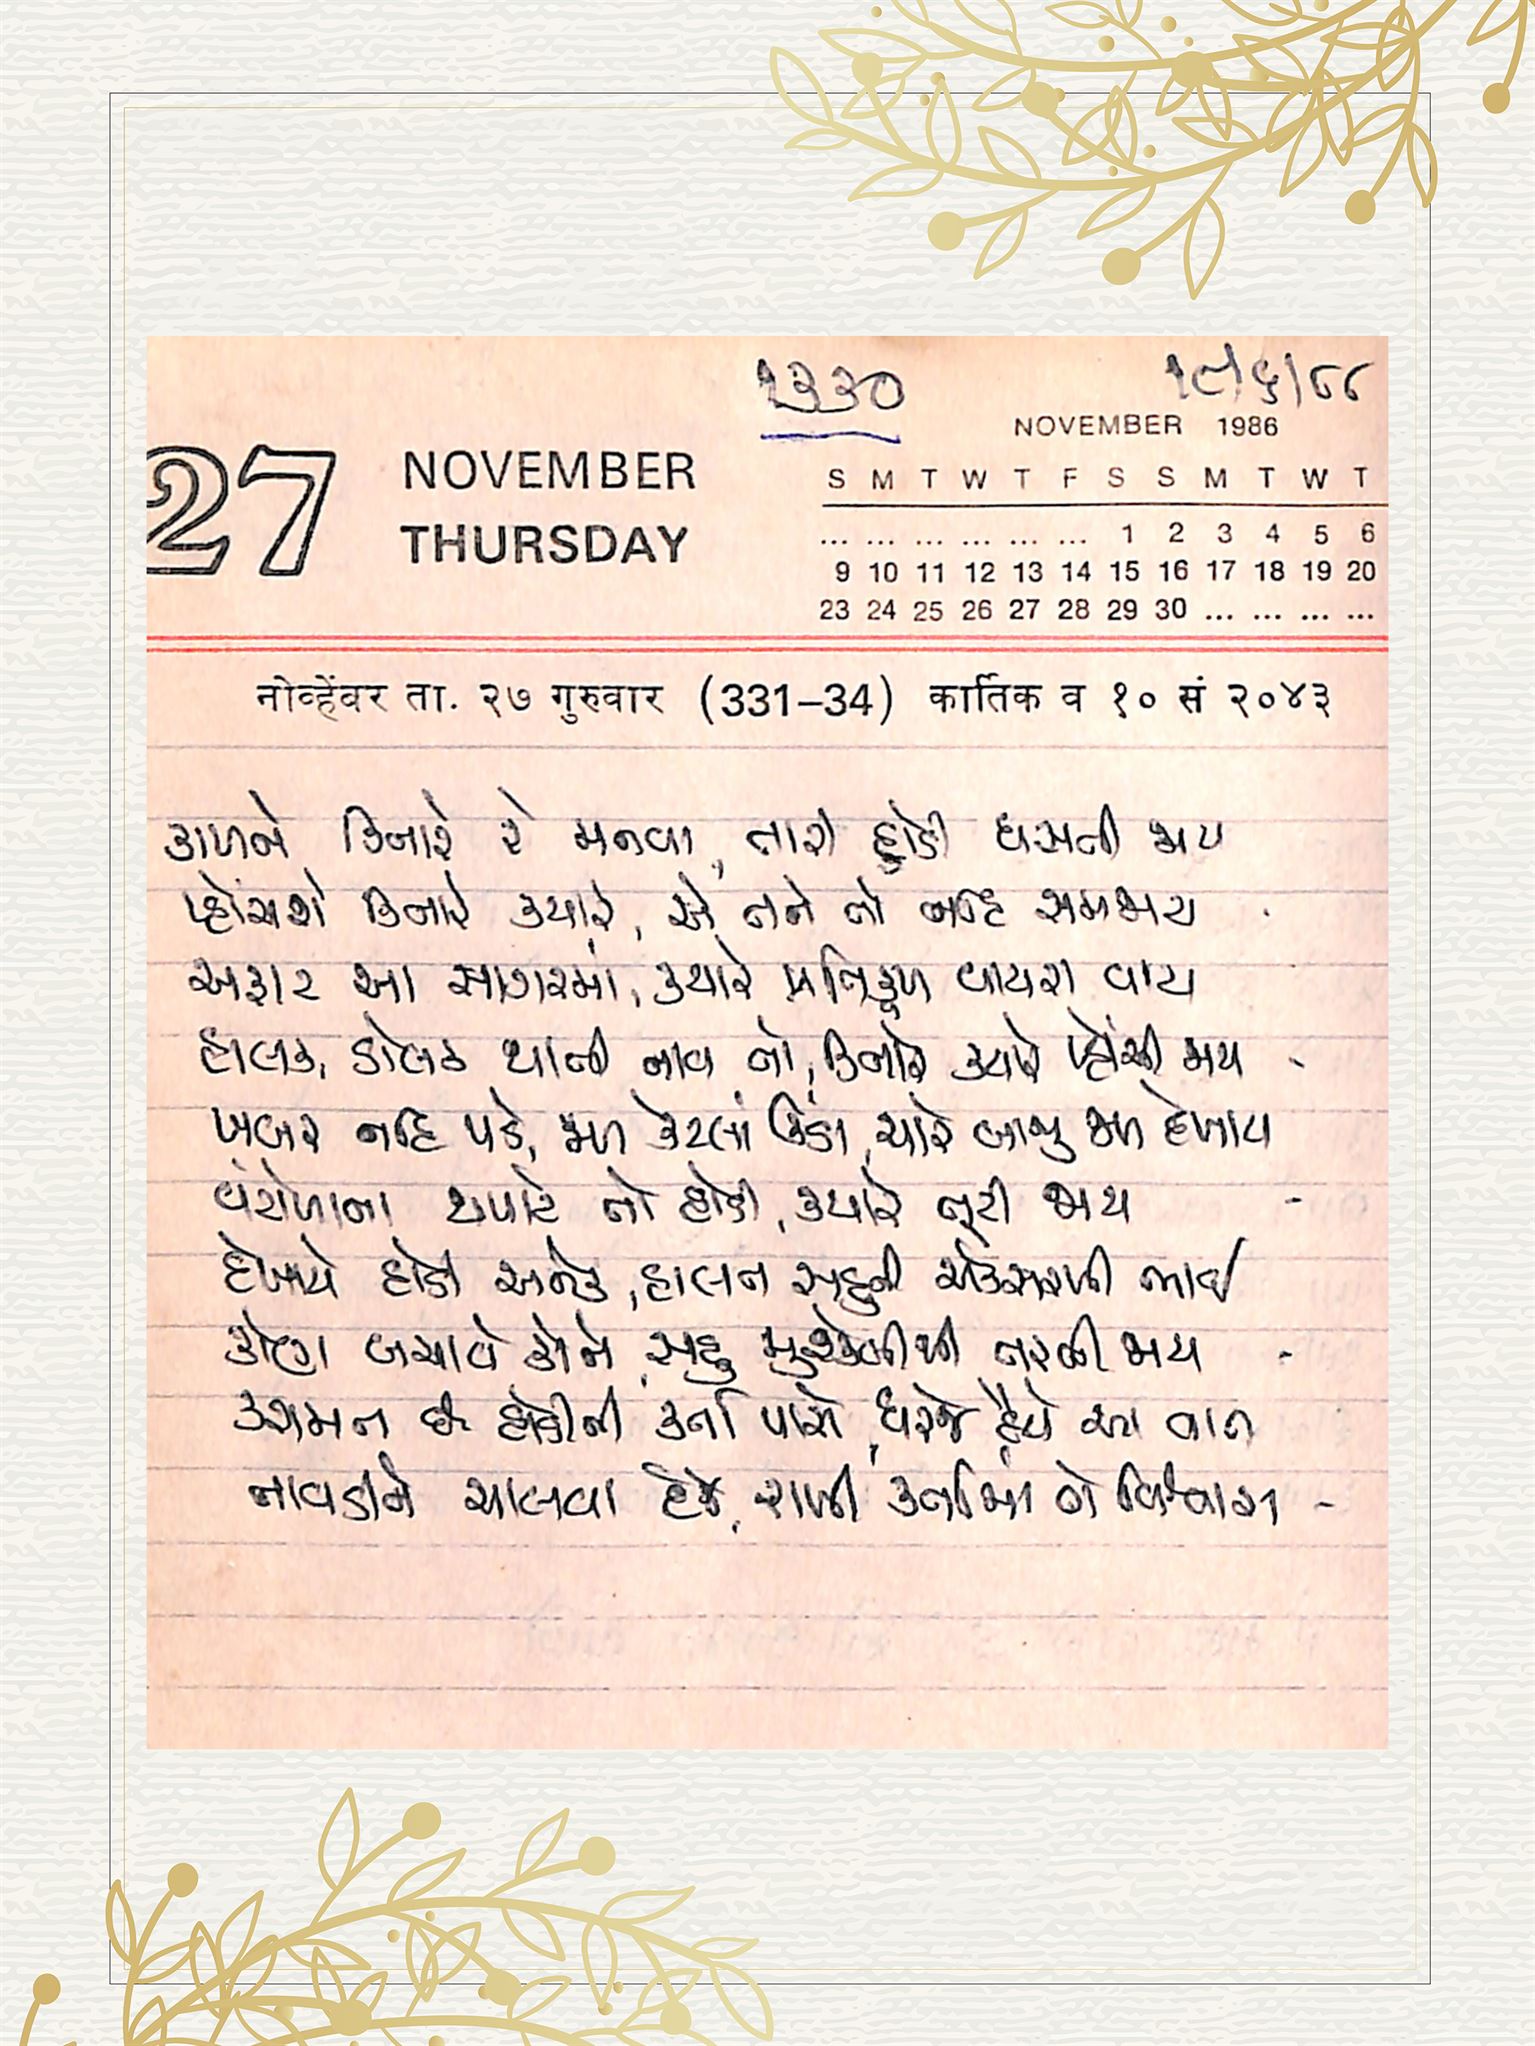 ૧૩૩૦
૧૯/૬/૮૮
NOVEMBER 1986
27 NOVEMBER
THURSDAY
S M T W T F S S M T W T
... ... ... ... ... ... 1 2 3 4 5 6
9 10 11 12 13 14 15 16 17 18 19 20
23 24 25 26 27 28 29 30 ... ... ... ...
नोव्हेंबर ता. २७ गुरुवार (331–34) कार्तिक व १० सं २०४३
કાળને કિનારે રે મનવા, તારી હોડી ધસતી જાય
પ્હોંચશે કિનારે ક્યારે, એ તને તો નહિ સમજાય .
અફાટ આ સાગરમાં, ક્યારે પ્રતિકૂળ વાયરા વાય
હાલક, ડોલક થાતી નાવ તો, કિનારે ક્યારે પ્હોંચી જાય -
ખબર નહિ પડે, જળ કેટલાં ઊંડા, ચારે બાજુ જળ દેખાય
વંટોળાના થપાટે તો હોડી, ક્યારે તૂટી જાય -
દેખાયે હોડી અનેક, હાલત સહુની એકસરખી ભાઈ
કોણ બચાવે કોને, સહુ મુશ્કેલીથી તરતી જાય -
કરામત છે હોડીની કર્તા પાસે, ધરજે હૈયે આ વાત
નાવડીને ચાલવા દેજે, રાખી કર્તામાં તો વિશ્વાસ -